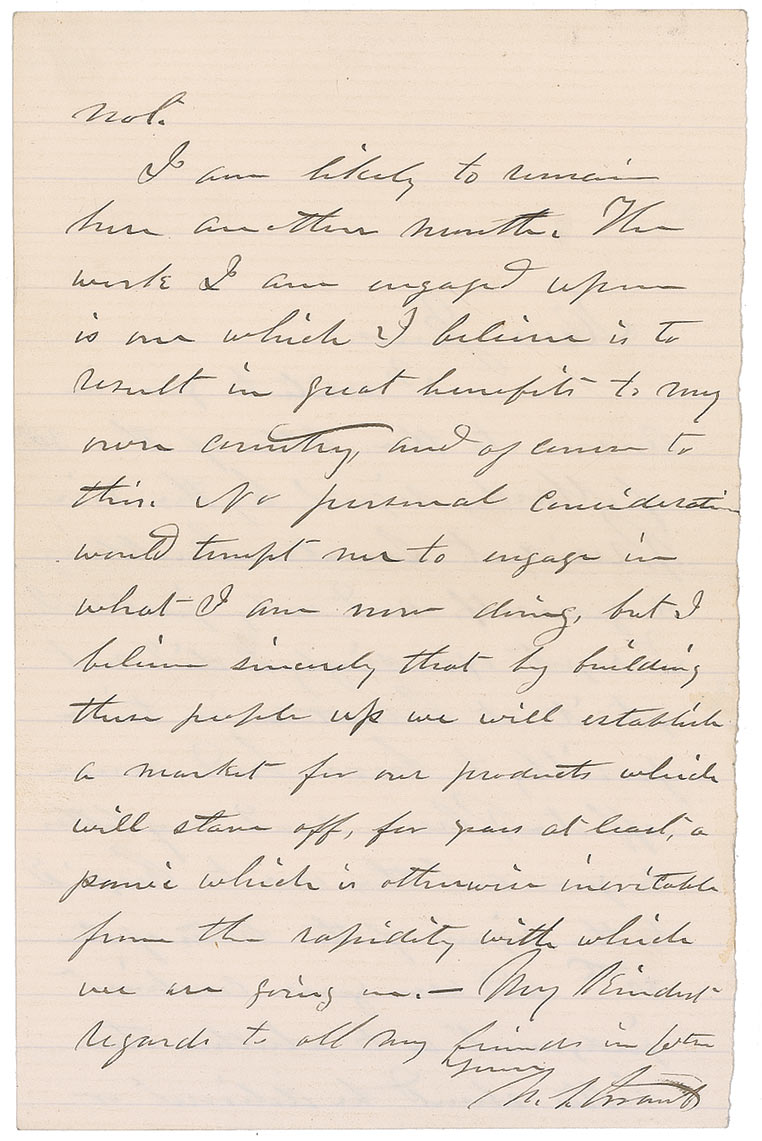 not.
I am likely to remain
here another month. The
work I am engaged upon
is one which I believe is to
result in great benefits to my
own country, and of course to
this. No personal consideration
would tempt me to engage in
what I am now doing, but I
believe sincerely that by building
these people up we will establish
a market for our products which
will stave off, for years at least, a
panic which is otherwise inevitable
from the rapidity with which
we are going on. — My kindest
regards to all my friends in
Yours
U. S. Grant